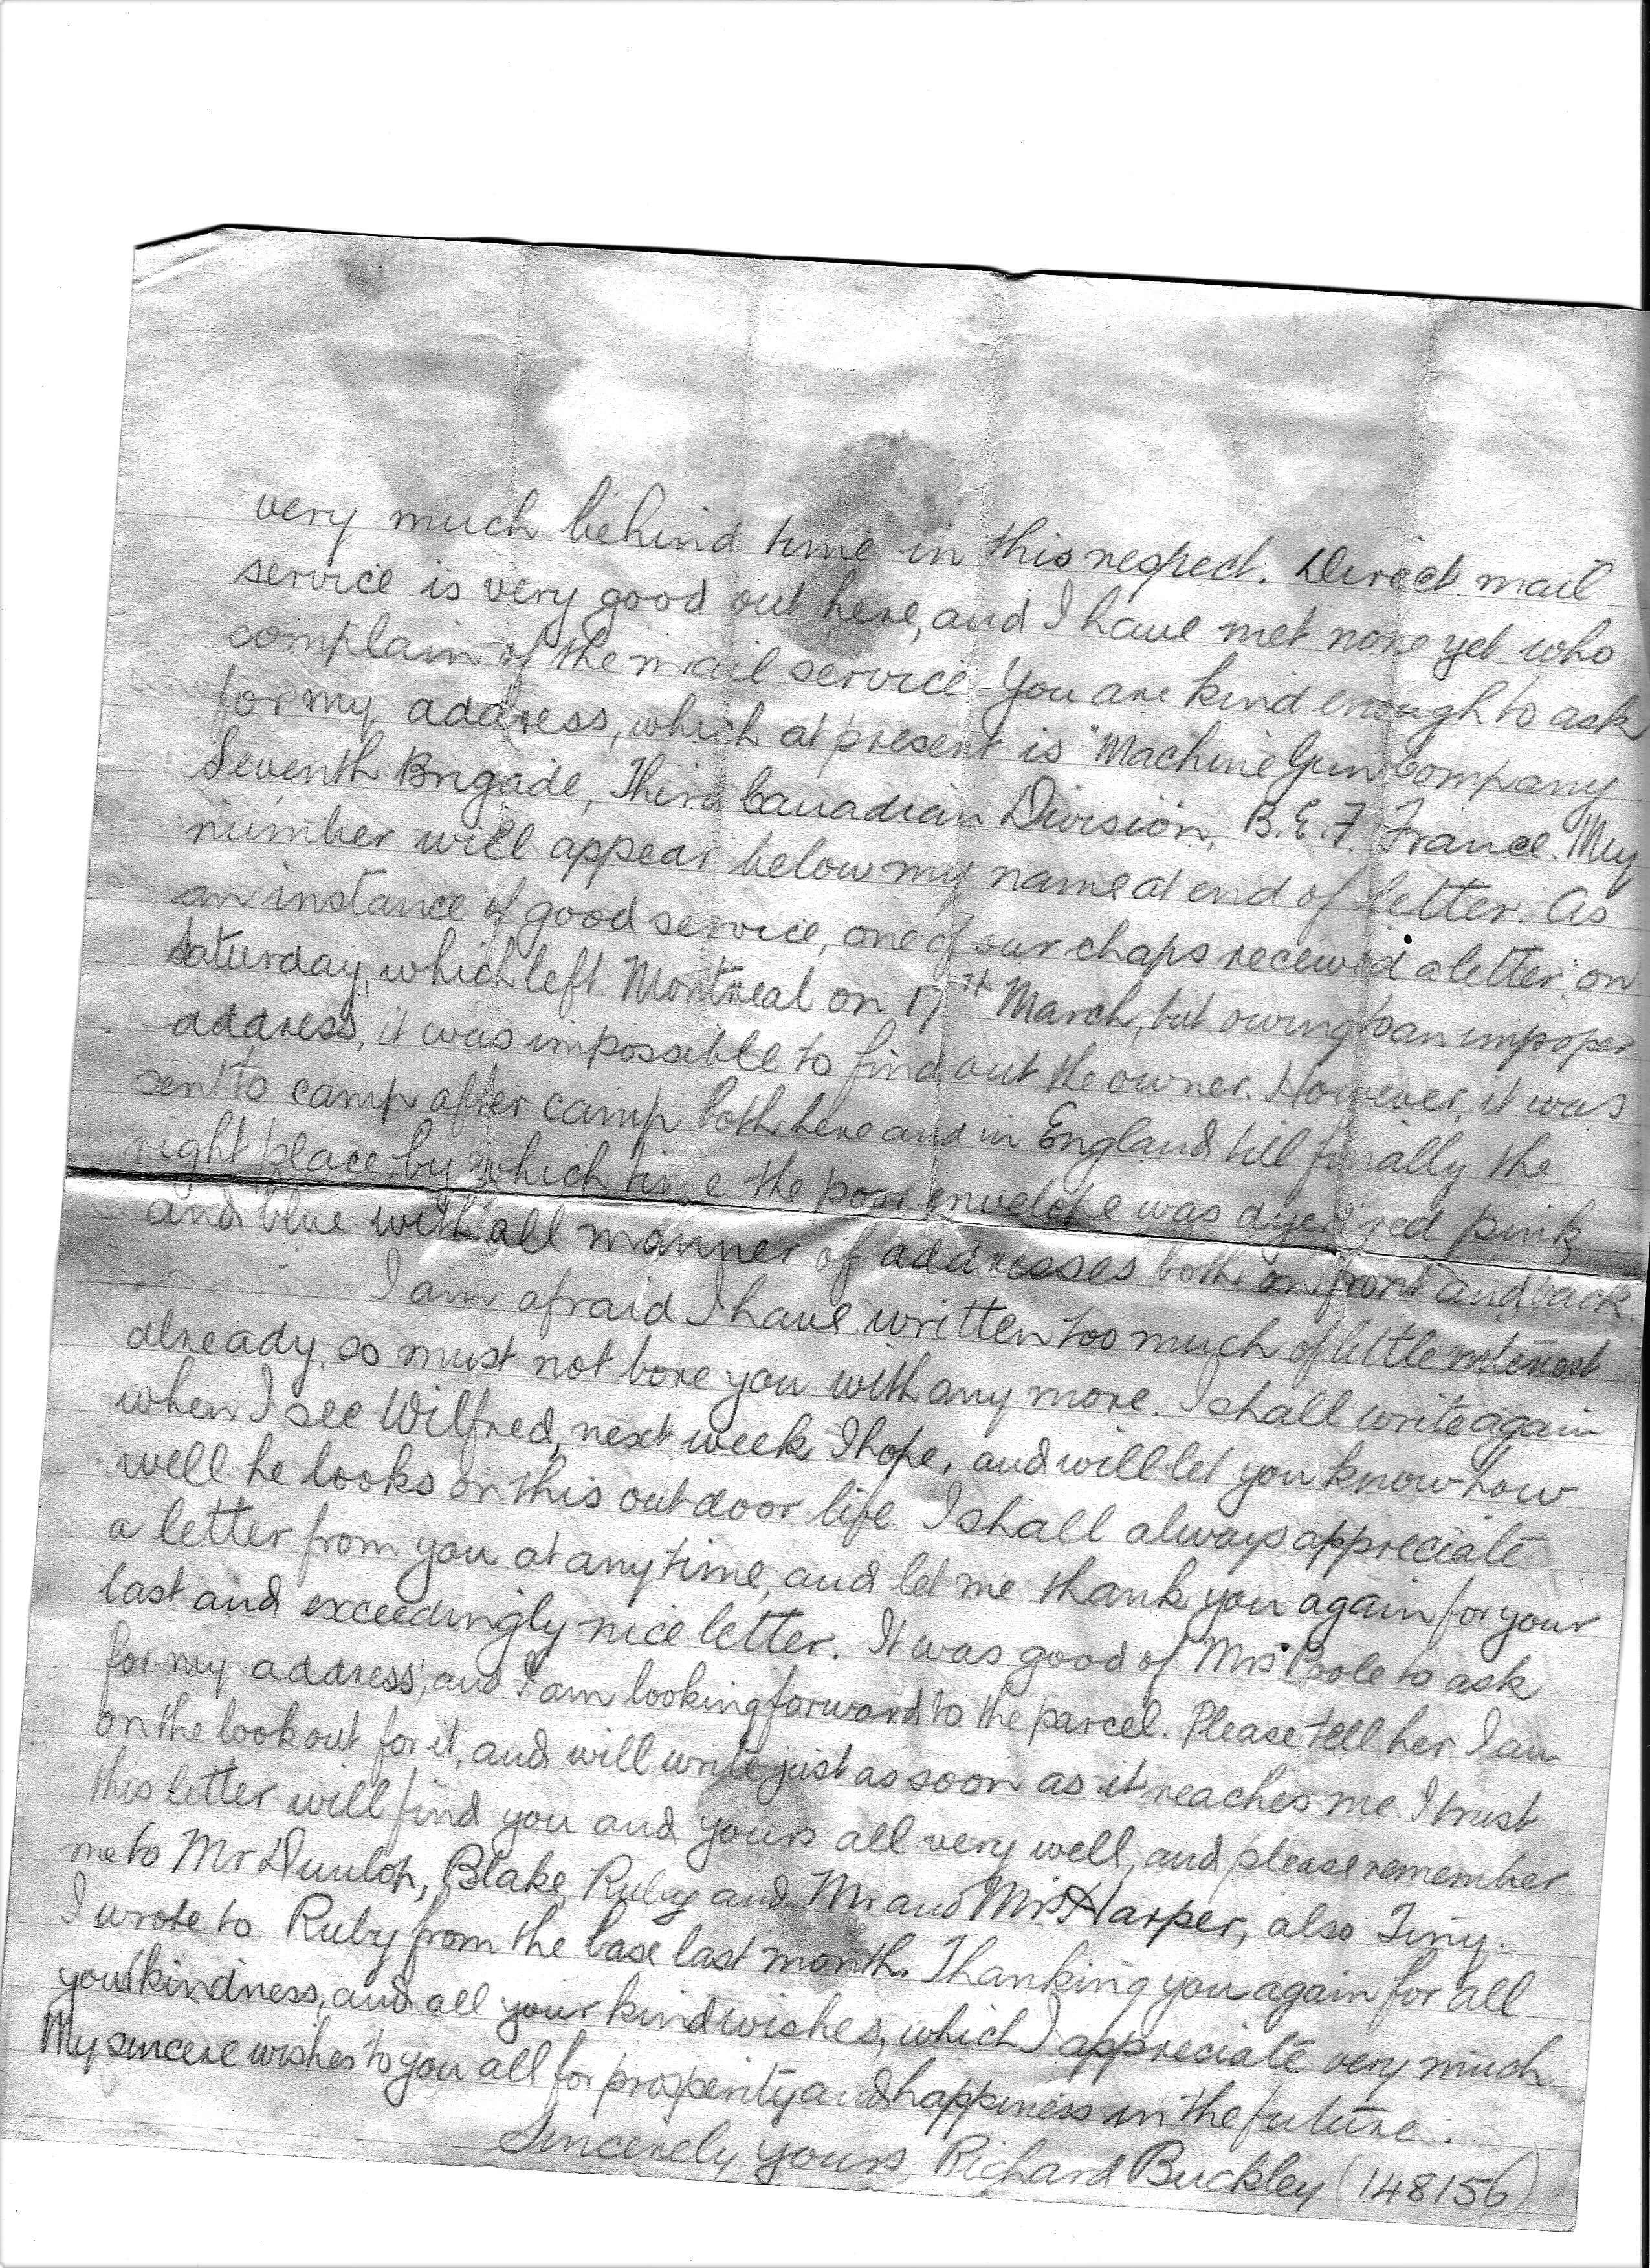 very much behind time in this respect. Direct mail
service is very good out here, and I have met none yet who
complain of the mail service. You are kind enough to ask
for my address, which at present is "Machine Gun Company
Seventh Brigade, Third Canadian Division, B.E.F. France. My
number will appear below my name at end of letter. As
an instance of good service, one of our chaps received a letter on
Saturday, which left Montreal on 17th March, but owing to an improper
address, it was impossible to find out the owner. However, it was
sent to camp after camp both here and in England till finally the
right place, by which time the poor envelope was dyed red pink
and blue with all manner of addresses both on front and back.
I am afraid I have written too much of little interest
already, so must not bore you with any more. I shall write again
when I see Wilfred, next week I hope, and will let you know how
well he looks on this outdoor life. I shall always appreciate
a letter from you at any time, and let me thank you again for your
last and exceedingly nice letter. It was good of Mrs Poole to ask
for my address, and I am looking forward to the parcel. Please tell her I am
on the lookout for it, and will write just as soon as it reaches me. I trust
this letter will find you and yours all very well, and please remember
me to Mr Dunlop, Blake, Ruby and Mr and Mrs Harper, also Tiny.
I wrote to Ruby from the base last month. Thanking you again for all
your kindness, and all your kind wishes, which I appreciate very much
My sincere wishes to you all for prosperity and happiness in the future.
Sincerely yours, Richard Buckley (148156)